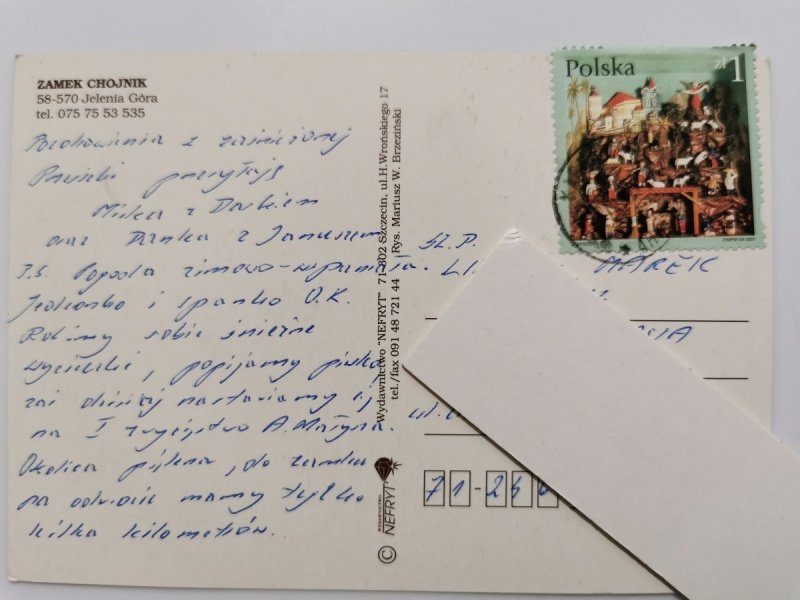 ZAMEK CHOJNIK
58-570 Jelenia Góra
tel. 075 75 53 535
Pozdrowienia z zaśnieżonej
przesyłają
Miśka z Darkiem
oraz Danka z Januszem
P.S Pogoda zimowo-wspaniała.
Jedzonko i spanko O.K.
Robimy sobie śnieżne
wycieczki, popijamy piwko,
zaś dzisiaj nastawiamy się
na I zwycięstwo A. Małysza.
Okolica piękna, do zamku
na odwrocie mamy tylko
kilka kilometrów.
Wydawnictwo "NEFRYT" 71-802 Szczecin, ul.H.Wrońskiego 17
tel./fax 091 48 721 44 Rys. Mariusz W. Brzeziński
WYDAWNICTWO
© NEFRYT
Polska
zł 1
PWPW SA 2001
Sz. P.
MAREK
ul.
71-246